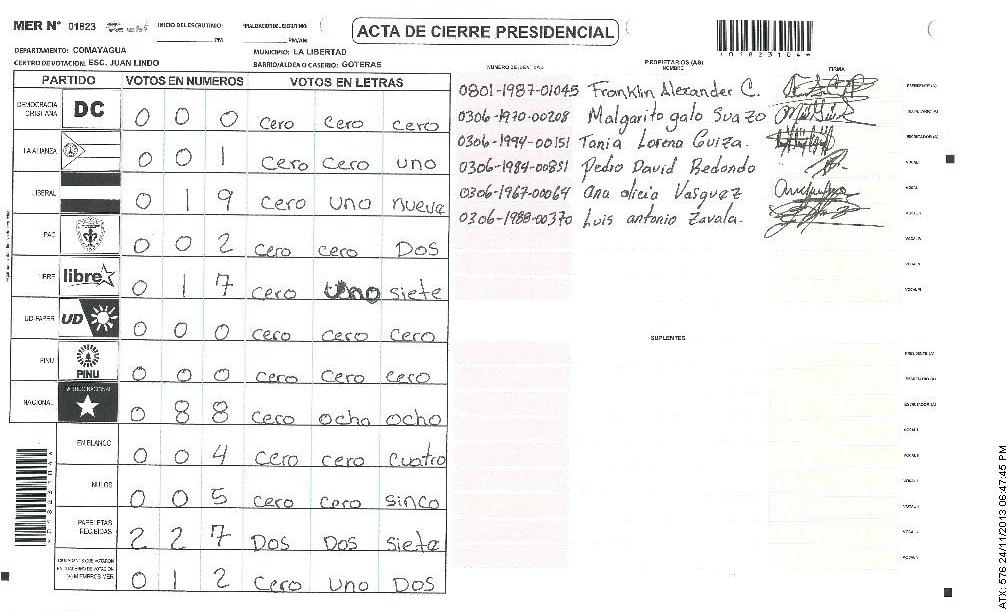 MER N° 01823 INICIO DEL ESCRUTINIO: PM FINALIZACION DEL ESCRUTINIO: PM/AM
ACTA DE CIERRE PRESIDENCIAL
01823104
DEPARTAMENTO: COMAYAGUA MUNICIPIO: LA LIBERTAD
CENTRO DE VOTACION: ESC. JUAN LINDO BARRIO/ALDEA O CASERIO: GOTERAS
PARTIDO VOTOS EN NUMEROS VOTOS EN LETRAS
DEMOCRACIA CRISTIANA DC 0 0 0 cero cero cero
LA ALIANZA 0 0 1 cero cero uno
LIBERAL 0 1 9 cero uno nueve
PAC 0 0 2 cero cero DOS
LIBRE libre 0 1 7 cero uno siete
UD-FAPER UD 0 0 0 cero cero cero
PINU PINU 0 0 0 cero cero cero
NACIONAL PARTIDO NACIONAL 0 8 8 cero ocho ocho
EN BLANCO 0 0 4 cero cero cuatro
NULOS 0 0 5 cero cero sinco
PAPELETAS RECIBIDAS 2 2 7 DOS DOS siete
CIUDADANOS QUE VOTARON EN CUADERNO DE VOTACION (+) MIEMBROS MER 0 1 2 cero uno DOS
NUMERO DE IDENTIDAD PROPIETARIOS (AS) NOMBRE FIRMA
0801-1987-01045 Franklin Alexander C. PRESIDENTE (A)
0306-1970-00208 Malgarito galo Suazo SECRETARIO (A)
0306-1994-00151 Tania Lorena Guiza. ESCRUTADOR (A)
0306-1984-00851 Pedro David Redondo VOCAL I
0306-1967-00064 ana alicia Vasquez VOCAL
0306-1988-00370 Luis antonio Zavala. VOCAL III
VOCAL IV
VOCAL VI
SUPLENTES
PRESIDENTE (A)
SECRETARIO (A)
ESCRUTADOR (A)
VOCAL I
VOCAL II
VOCAL V
ATX: 576 24/11/2013 06:47:45 PM